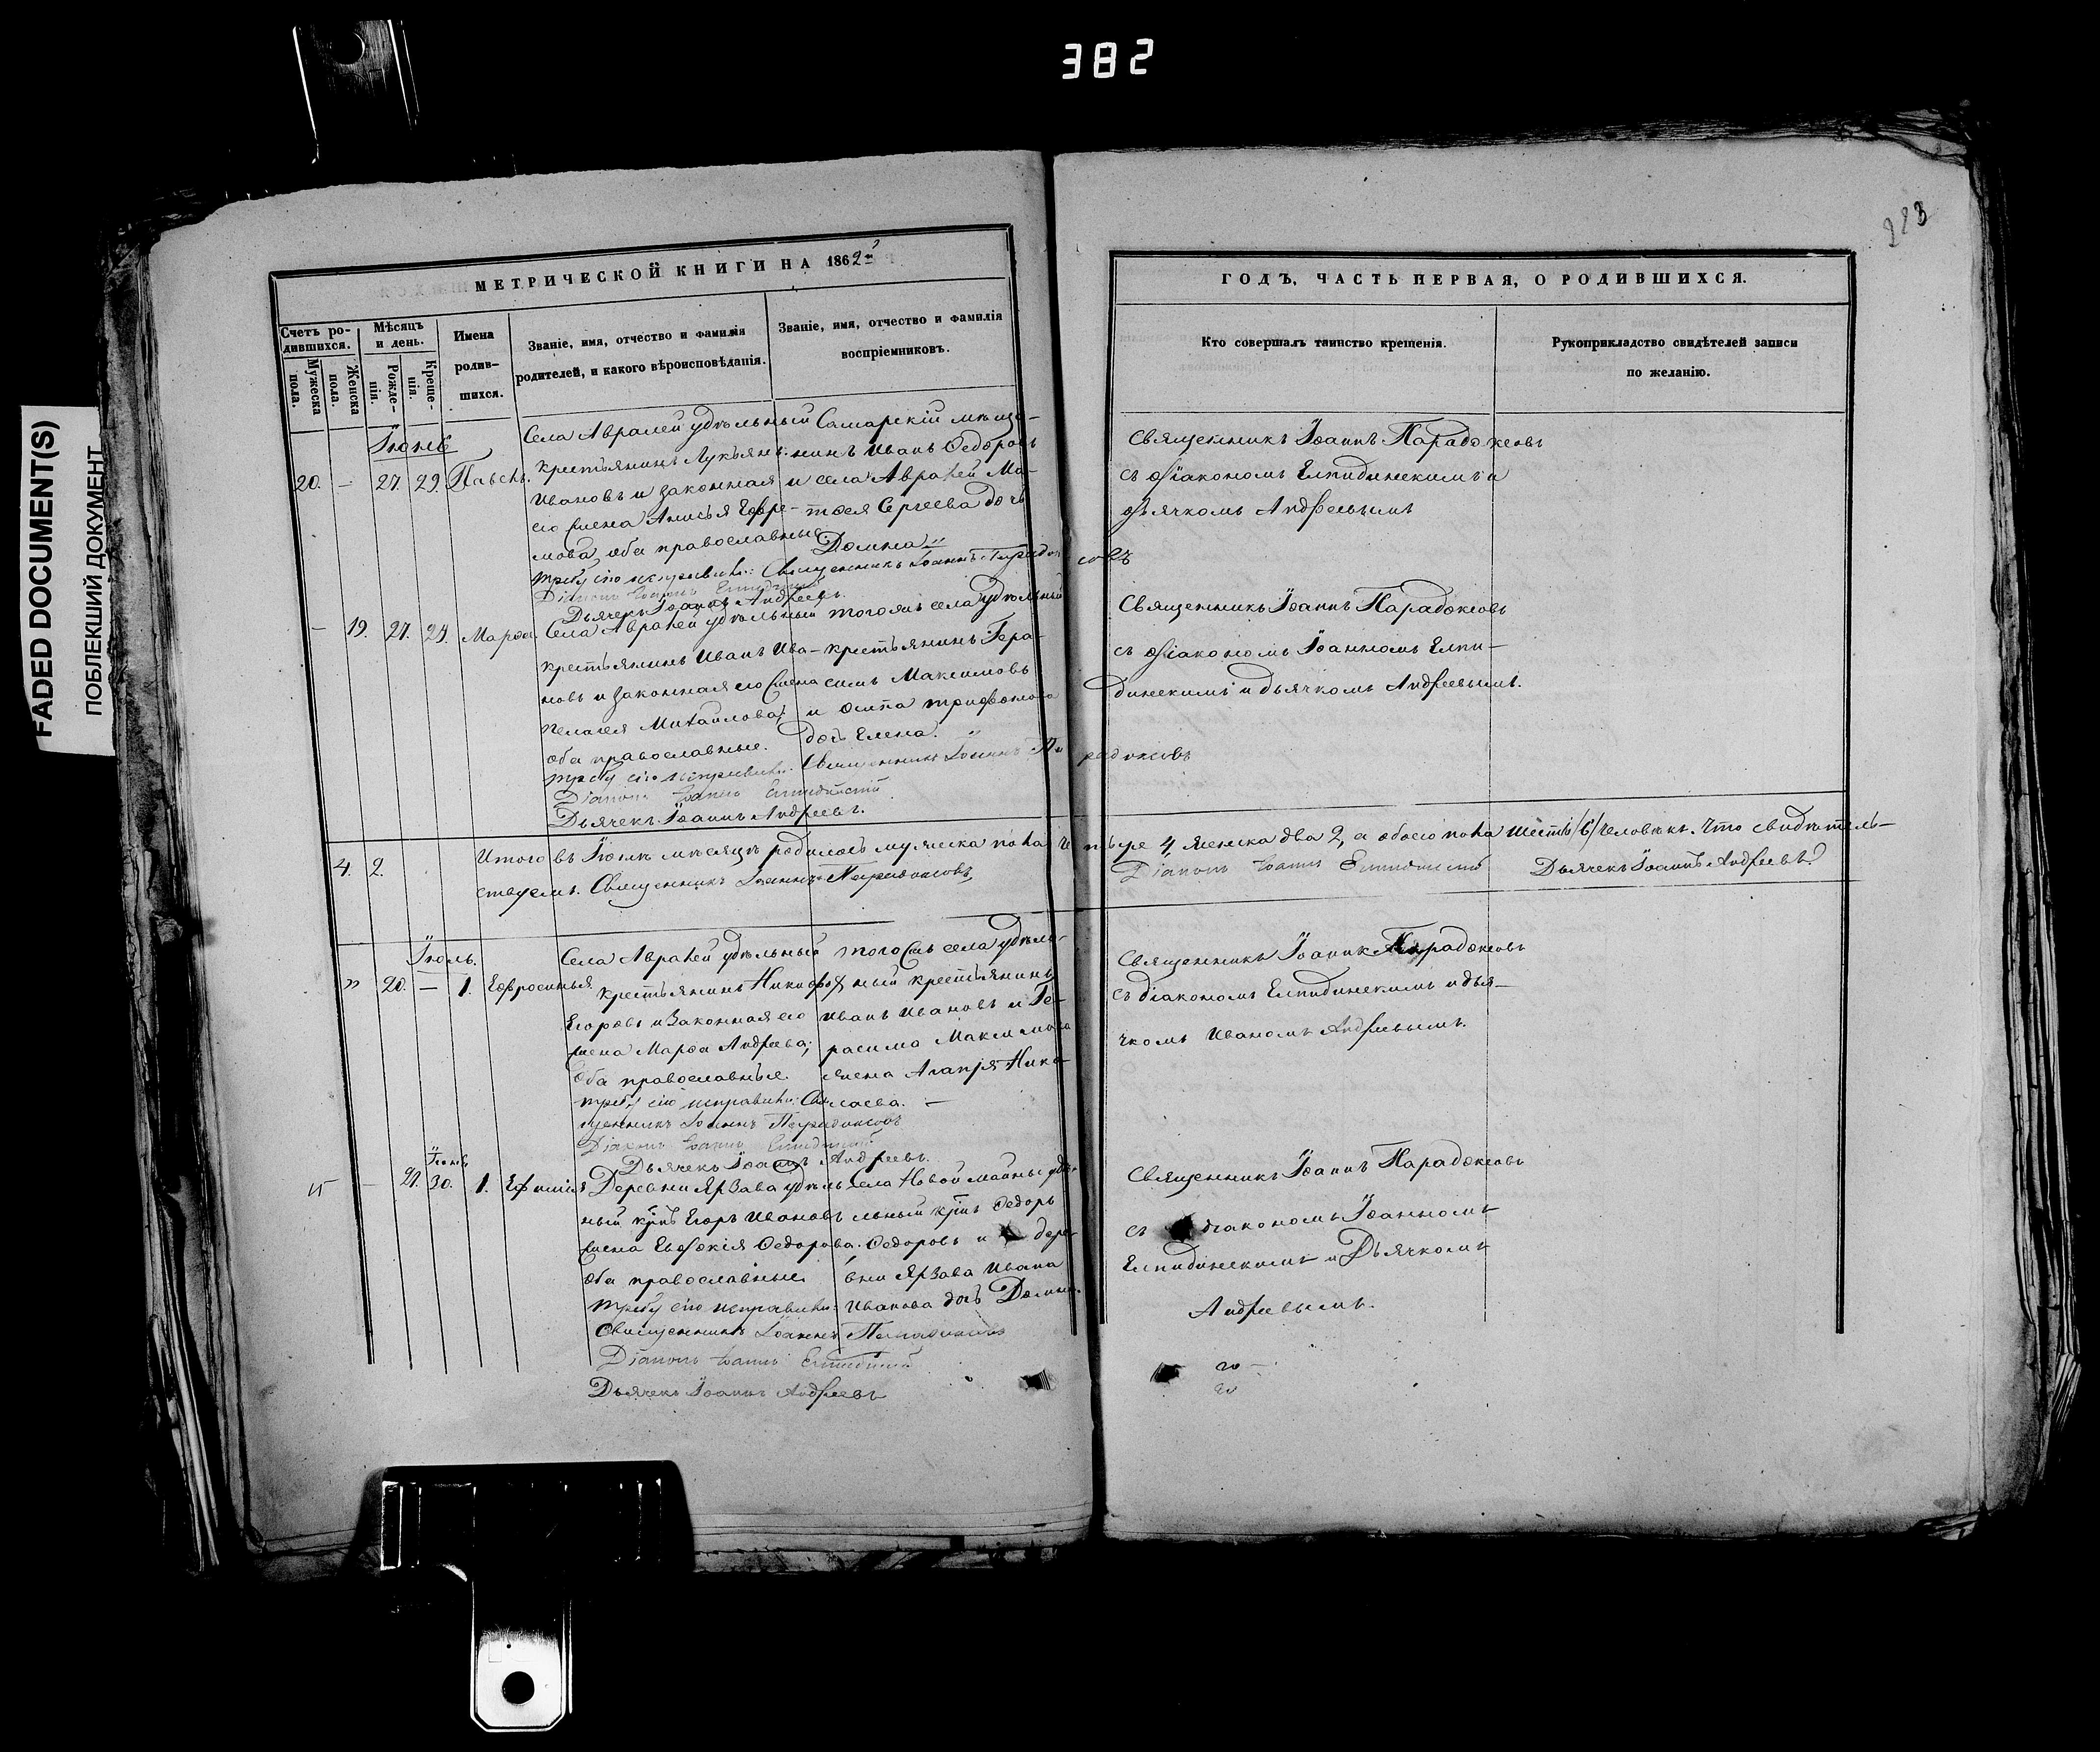 382
FADED DOCUMENT(S)
ПОБЛЕКШИЙ ДОКУМЕНТ
223
МЕТРИЧЕСКОЙ КНИГИ НА 1862
Счетъ ро-
дившихся.
Мужеска
пола.
Женска
пола.
Мѣсяцъ
и день.
Рожде-
нія.
Креще-
нія.
Имена
родив-
шихся.
Званіе, имя, отчество и фамилія
родителей, и какого вѣроисповѣданія.
Званіе, имя, отчество и фамилія
воспріемниковъ.
ГОДЪ, ЧАСТЬ ПЕРВАЯ, О РОДИВШИХСЯ.
Кто совершалъ таинство крещенія.
Рукоприкладство свидѣтелей записи
по желанію.
Іюнь
20. — 27. 29. Павелъ.
Села Авралей удѣльный
крестьянинъ Лукьянъ
Ивановъ и законная
его жена Анисья Ефре-
мова, оба православные.
Самарскій мѣща-
нинъ Иванъ Ѳедоровъ
и села Авралей Ма-
тѳея Сергѣева дочь
Домна
Священникъ Іоаннъ Парадоксовъ
съ діакономъ Елпидинскимъ и
дьячкомъ Андреевымъ
требу сію исправили: Священникъ Іоаннъ Парадоксовъ
Діаконъ Іоаннъ Елпидинскій
Дьячекъ Іоаннъ Андреевъ.
— 19. 27. 29. Марѳа
Села Авралей удѣльный
крестьянинъ Иванъ Ива-
новъ и законная его жена
Пелагея Михайлова,
оба православные.
того жъ села удѣльный
крестьянинъ Гера-
симъ Максимовъ
и Осипа Трифонова
дочь Елена.
Священникъ Іоаннъ Парадоксовъ
съ діакономъ Іоанномъ Елпи-
динскимъ и дьячкомъ Андреевымъ.
требу сію исправили: Священникъ Іоаннъ Парадоксовъ
Діаконъ Іоаннъ Елпидинскій
Дьячекъ Іоаннъ Андреевъ.
4. 2. Итого въ Іюнѣ мѣсяцѣ родилось мужеска пола четыре 4, женска два 2, а обоего пола шесть /6/ человѣкъ. Что свидѣтель-
ствуемъ. Священникъ Іоаннъ Парадоксовъ, Діаконъ Іоаннъ Елпидинскій Дьячекъ Іоаннъ Андреевъ
Іюль.
" 20. — 1. Ефросинья
Села Авралей удѣльный
крестьянинъ Никифоръ
Егоровъ и законная его
жена Марѳа Андреева;
оба православные.
того жъ села удѣль-
ный крестьянинъ
Иванъ Ивановъ и Ге-
расима Максимова
жена Агапія Нико-
лаева. —
Священникъ Іоаннъ Парадоксовъ
съ діакономъ Елпидинскимъ и дья-
чкомъ Иваномъ Андреевымъ.
требу сію исправили: Свя-
щенникъ Іоаннъ Парадоксовъ
Діаконъ Іоаннъ Елпидинскій
Дьячекъ Іоаннъ Андреевъ.
Іюнь
21. — 30. 1. Ефимія
Деревни Ярзава удѣль-
ный кр̃нъ Егоръ Ивановъ
жена Евдокія Ѳедорова.
оба православные.
Села Новой Майны удѣ-
льный кр̃нъ Ѳедоръ
Ѳедоровъ и дере-
вни Ярзава Ивана
Иванова дочь Домна.
Священникъ Іоаннъ Парадоксовъ
съ діакономъ Іоанномъ
Елпидинскимъ и Дьячкомъ
Андреевымъ.
требу сію исправили:
Священникъ Іоаннъ Парадоксовъ
Діаконъ Іоаннъ Елпидинскій
Дьячекъ Іоаннъ Андреевъ